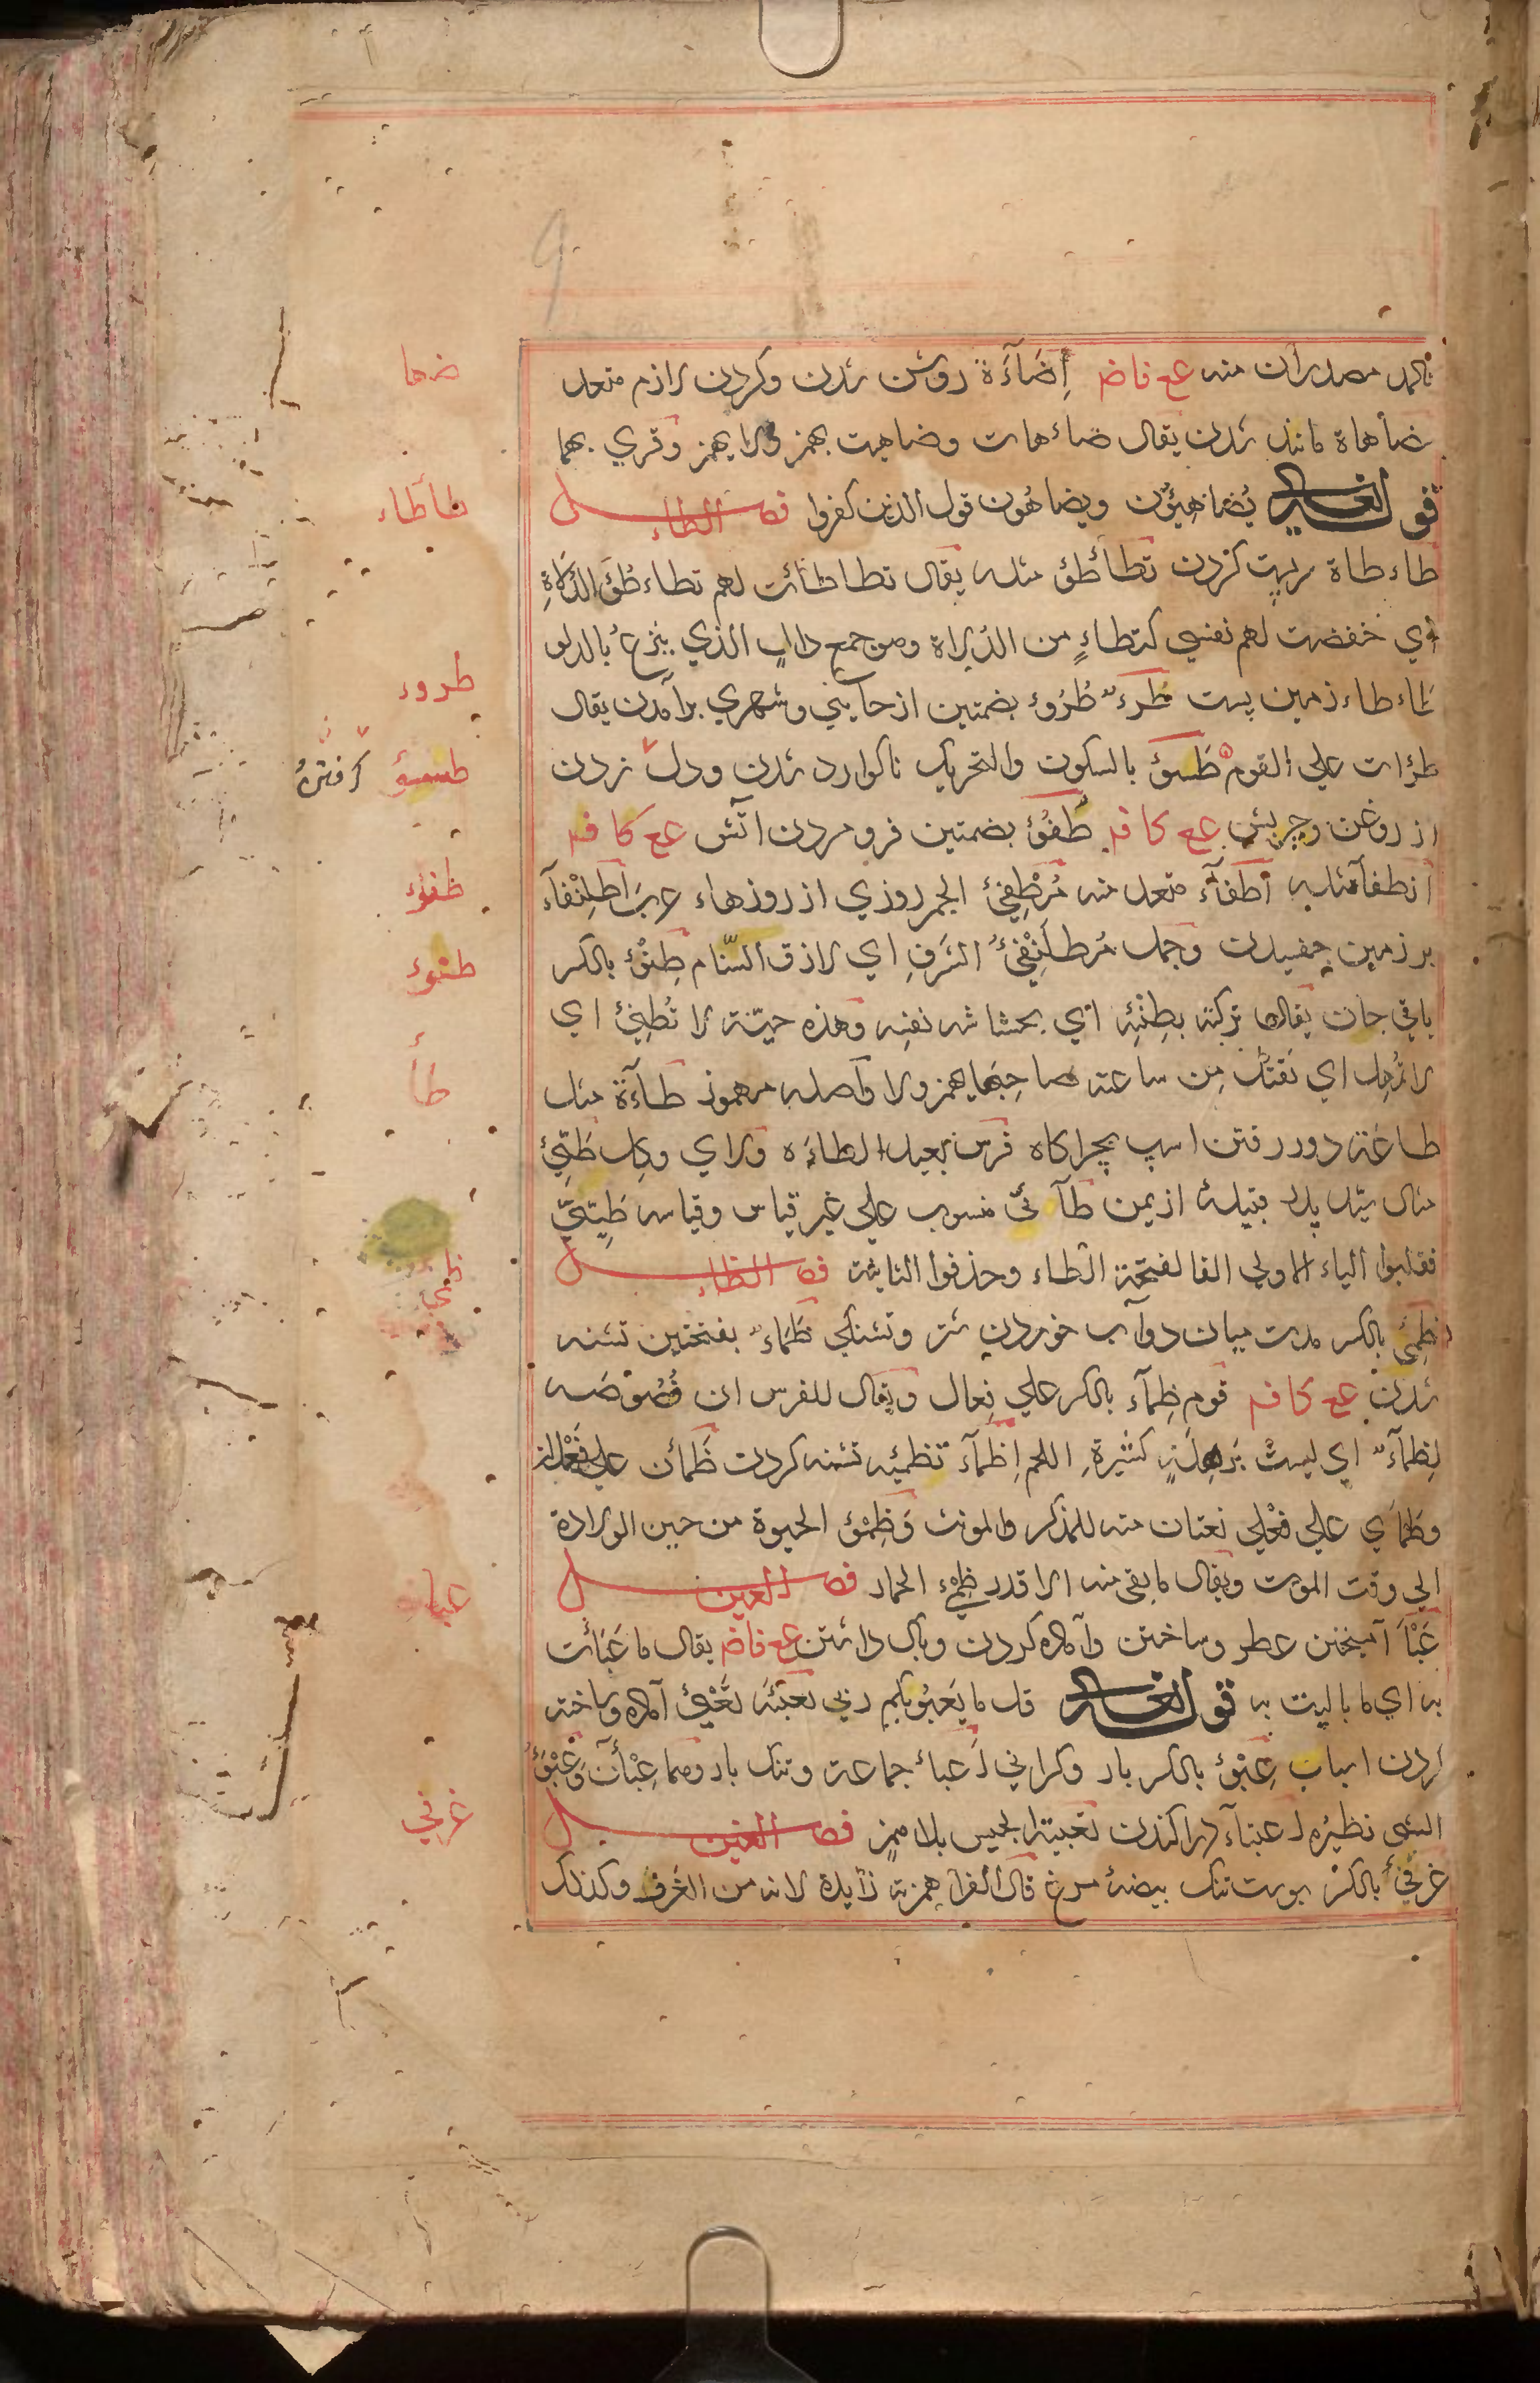 مصدران منه عج فاض إِضَآءَة روشن شدن وكردن لازم متعد
ضاهاة مانند شدن يقال ضاءهات وضاهيت بهمز ولا يهمز وقري بهما
قوله تعالى يُضاهِئون ويضاهُون قول الذين كفروا فصل الطاء
طاءطاة پست كردن تَطَأْطُئ مثله يقال تطاطأت لهم تطاءطُؤَ الدُلاةِ
اي خفضت لهم نفسي كتطاءٍ من الدُلاة وهو جمع دالٍ الذي ينزعُ بالدلو
طاءطاء زمين پست طَرءٌ طُرُوء بضمتين از جايي وشهري برآمدن يقال
طرات علي القوم طَسَئ بالسكون والتحريك ناكوارد شدن ودل زدن
از روغن وچربش عج كا فم طُفُؤ بضمتين فرو مردن اتش عج كا فم
انطفاء مثله اطفآء متعد منه مُطْفِئ الجمر روزي از روزهاء عرب اطلنفآء
بر زمين چفسيدن وجمل مُطلَنْفِئُ الشَرَفِ اي لازق السّنام طِنْؤ بالكسر
باقي جان يقال تركته بطِنْئِه اي بحشاشه نفسه وهذه حيّة لا تُطْنِئ اي
لا اي تقتل مِن ساعته صاحبَها يهمز ولا واصله مهموز طَآءَة مثل
طاعَة دور رفتن اسپ بچراكاه فرس بعيد الطاءَه طَيِّئ
مثال سيّد پدر قبيلهٔ از يمن طآئي منسوب علي غير قياس وقياسه طَيّئيّ
فقلبوا الياء الاولي الفا لفتحة الطاء وحذفوا الثانية فصل الظاء
ظِمْئ بالكسر مدت ميان دو آب خوردن شتر وتشنكي ظَمَاءٌ بفتحتين تشنه
شدن عج كا فم قوم ظِمآء بالكسر علي فِعال ويقال للفرس ان فُصُوصَه
لظِمآءٌ اي ليست بَرهِلَةٍ كثيرةِ اللحم اِظمآء تظمئه تشنه كردن ظَمْأن علي فَعْلان
وظَمْاي علي فَعْلي نعتان منه للمذكر والمونث وَظِمْؤ الحيوة من حين الولادة
الي وقت الموت ويقال ما بقي منه الا قدر ظِمْءِ الحمار فصل العين
عَبْأ آميختن عطر وساختن وآماده كردن وباك داشتن عج فاض يقال ما عَبَأت
به اي ما باليت به قوله تعالى قل ما يَعبُؤ بكم ربي تَعْبِئَه تَعْبِئ آماده وساخته
كردن اسباب عِبْؤ بالكسر بار وكراني اَعباء جماعة وتنك بار وهما عِبْأَن وَعِبْؤُ
الشي نظيرُه اعتباء تعبيته الجيش بلا همزٍ فصل الغين
غرقئ بالكسر پوست تنك بيضهٔ مرغ قال الفرا همزته زايدة لانه من الغَرق وكذلك
ضها
طاطاء
طروء
طسئو
طفوء
طنوء
طأ
عباء
غرقي